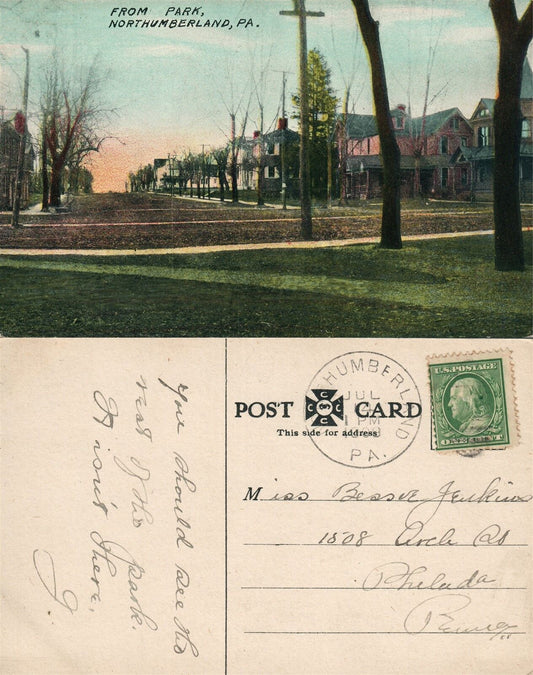 FROM PARK,
NORTHUMBERLAND, PA.
You should see the
rest of the park.
It isn't there.
J
NORTHUMBERLAND
JUL
1 PM
PA.
U.S. POSTAGE
POST CARD
CCCC
This side for address
Miss Bessie Jenkins
1508 Arch St
Philada
Penna